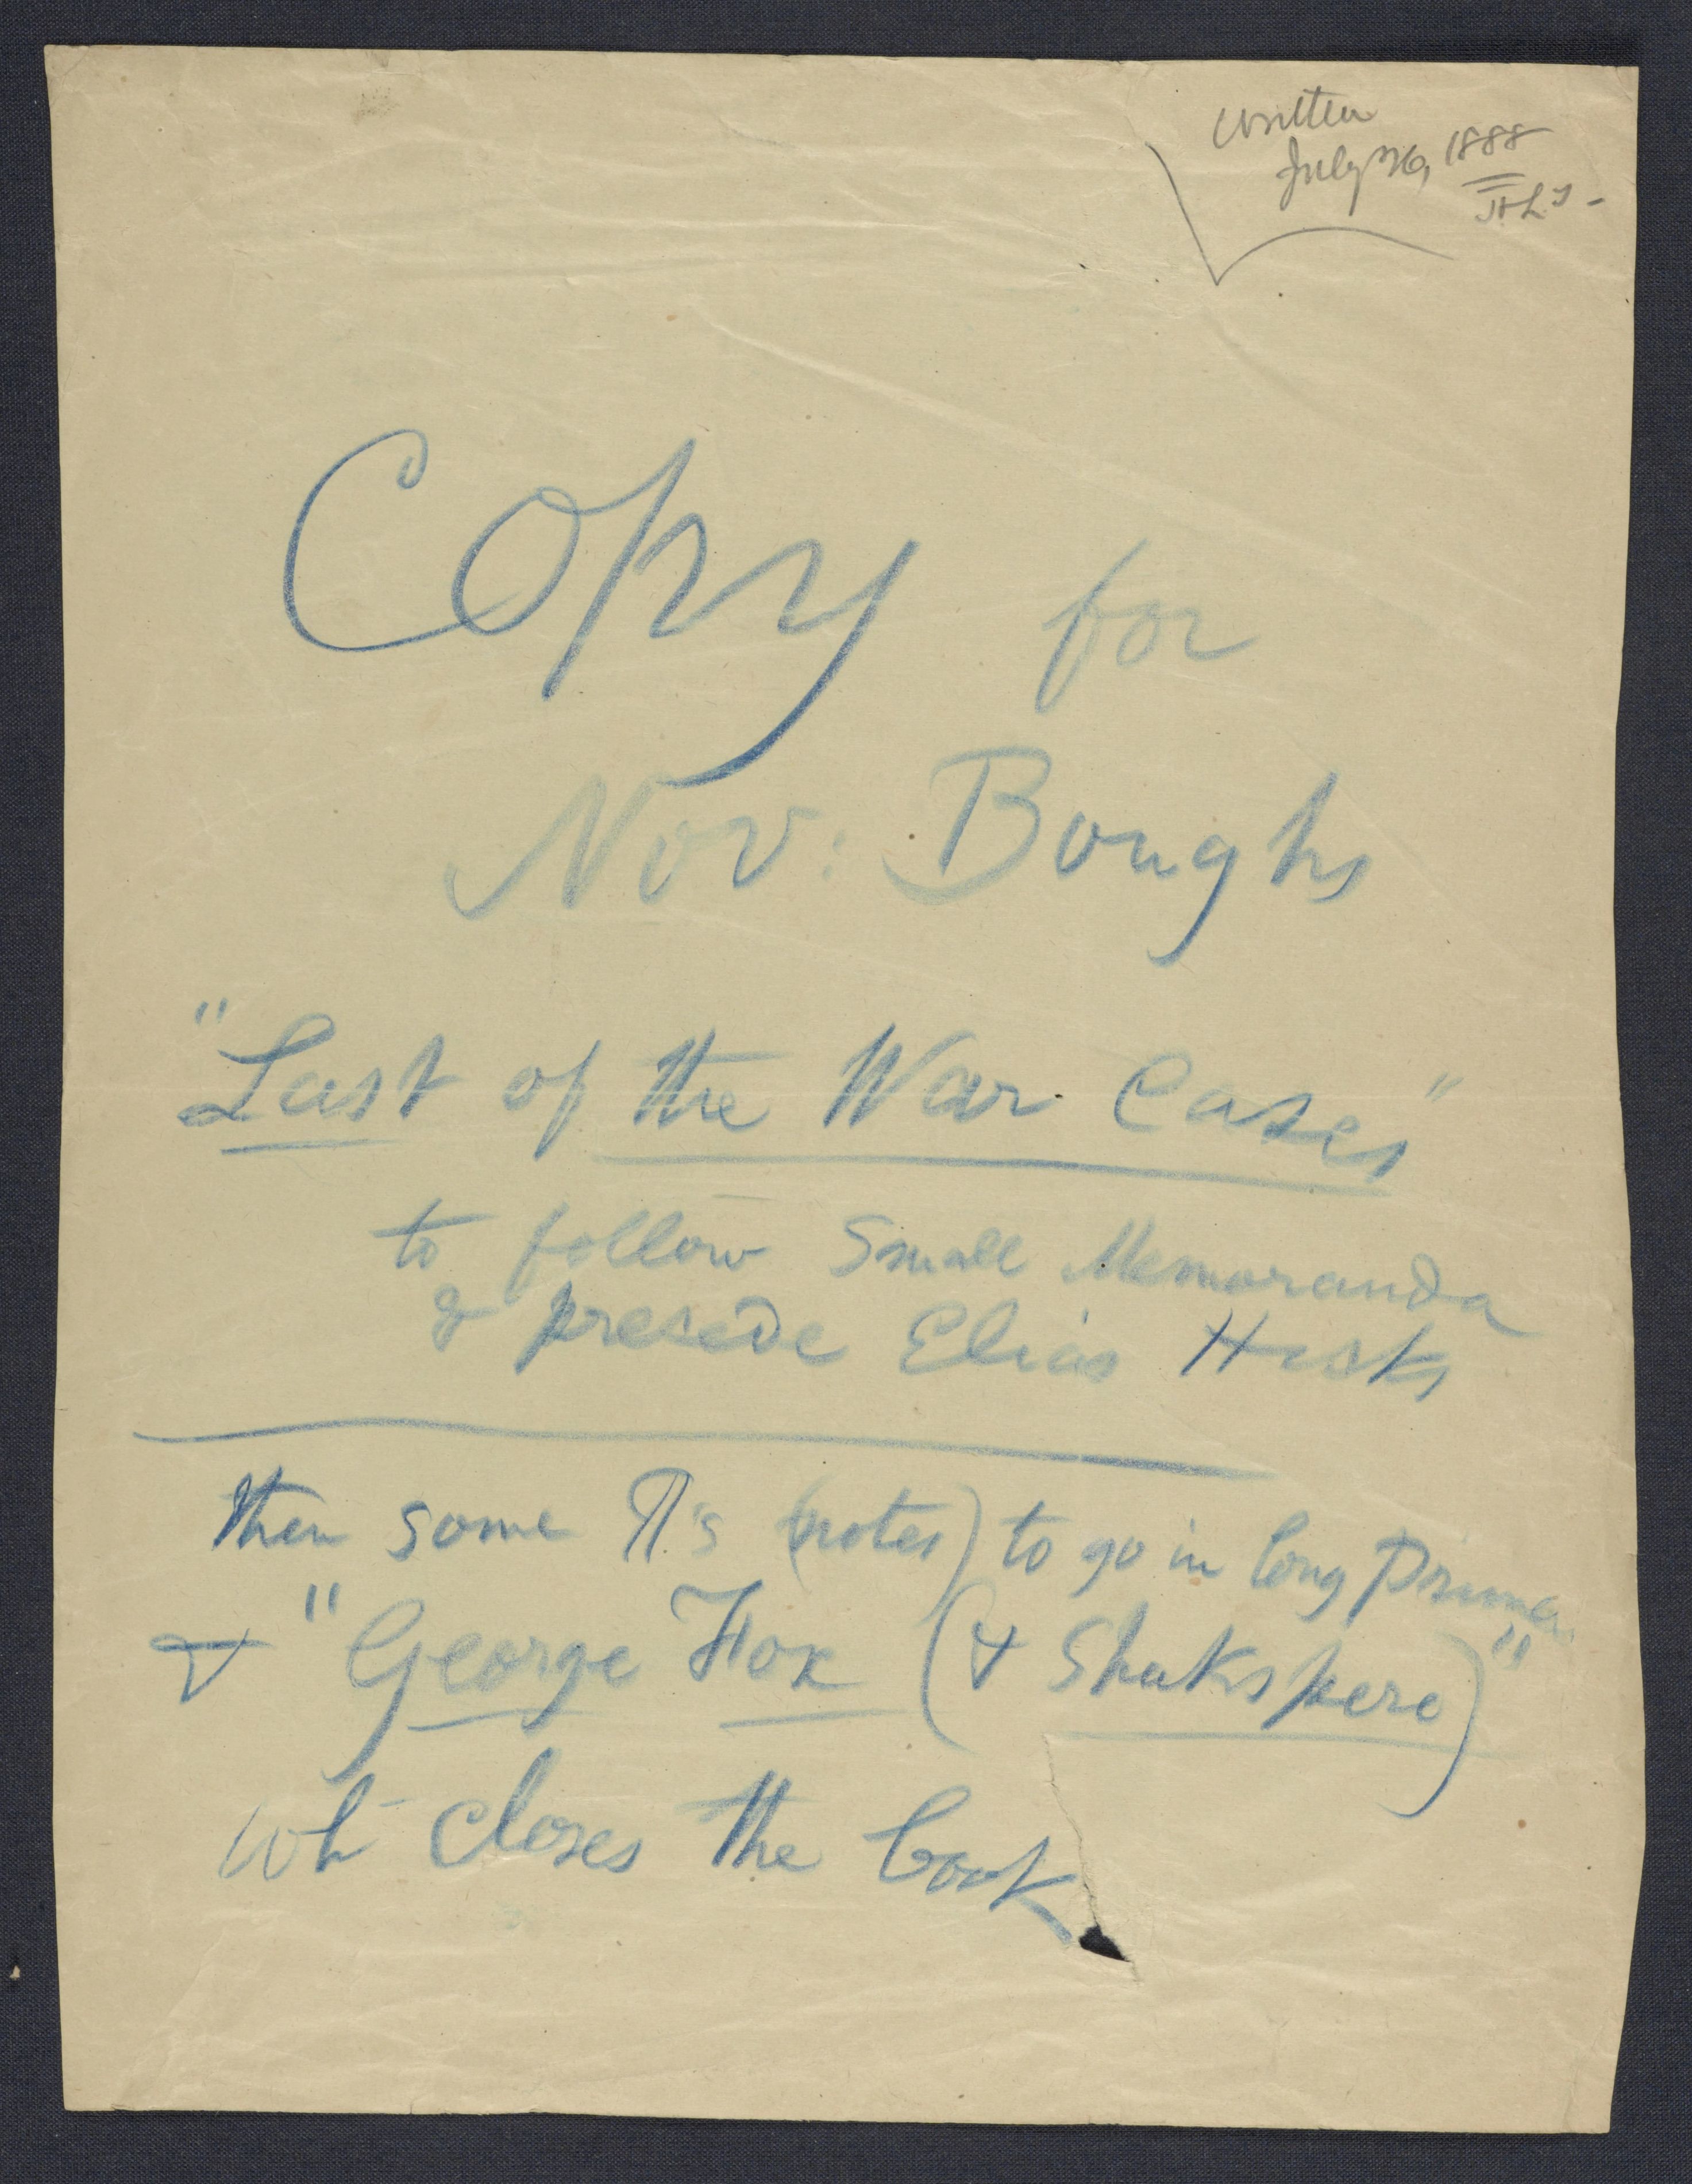 written
July 26, 1888
H.L.T-
Copy for
Nov: Boughs
"Last of the War Cases"
to follow Small Memoranda
& presede Elias Hicks
then some ¶'s (notes) to go in long Primer
& "George Fox (& Shakspere)"
wh closes the book